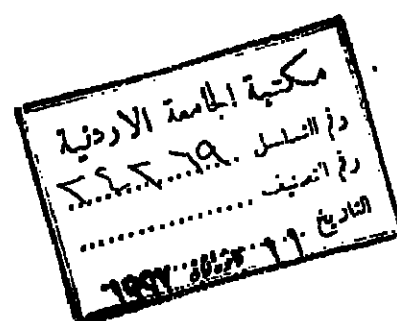 مكتبة الجامعة الاردنية
رقم التسلسل ٢٤٢٠٦٩
رقم التصنيف ..............
التاريخ ١٩٩٧